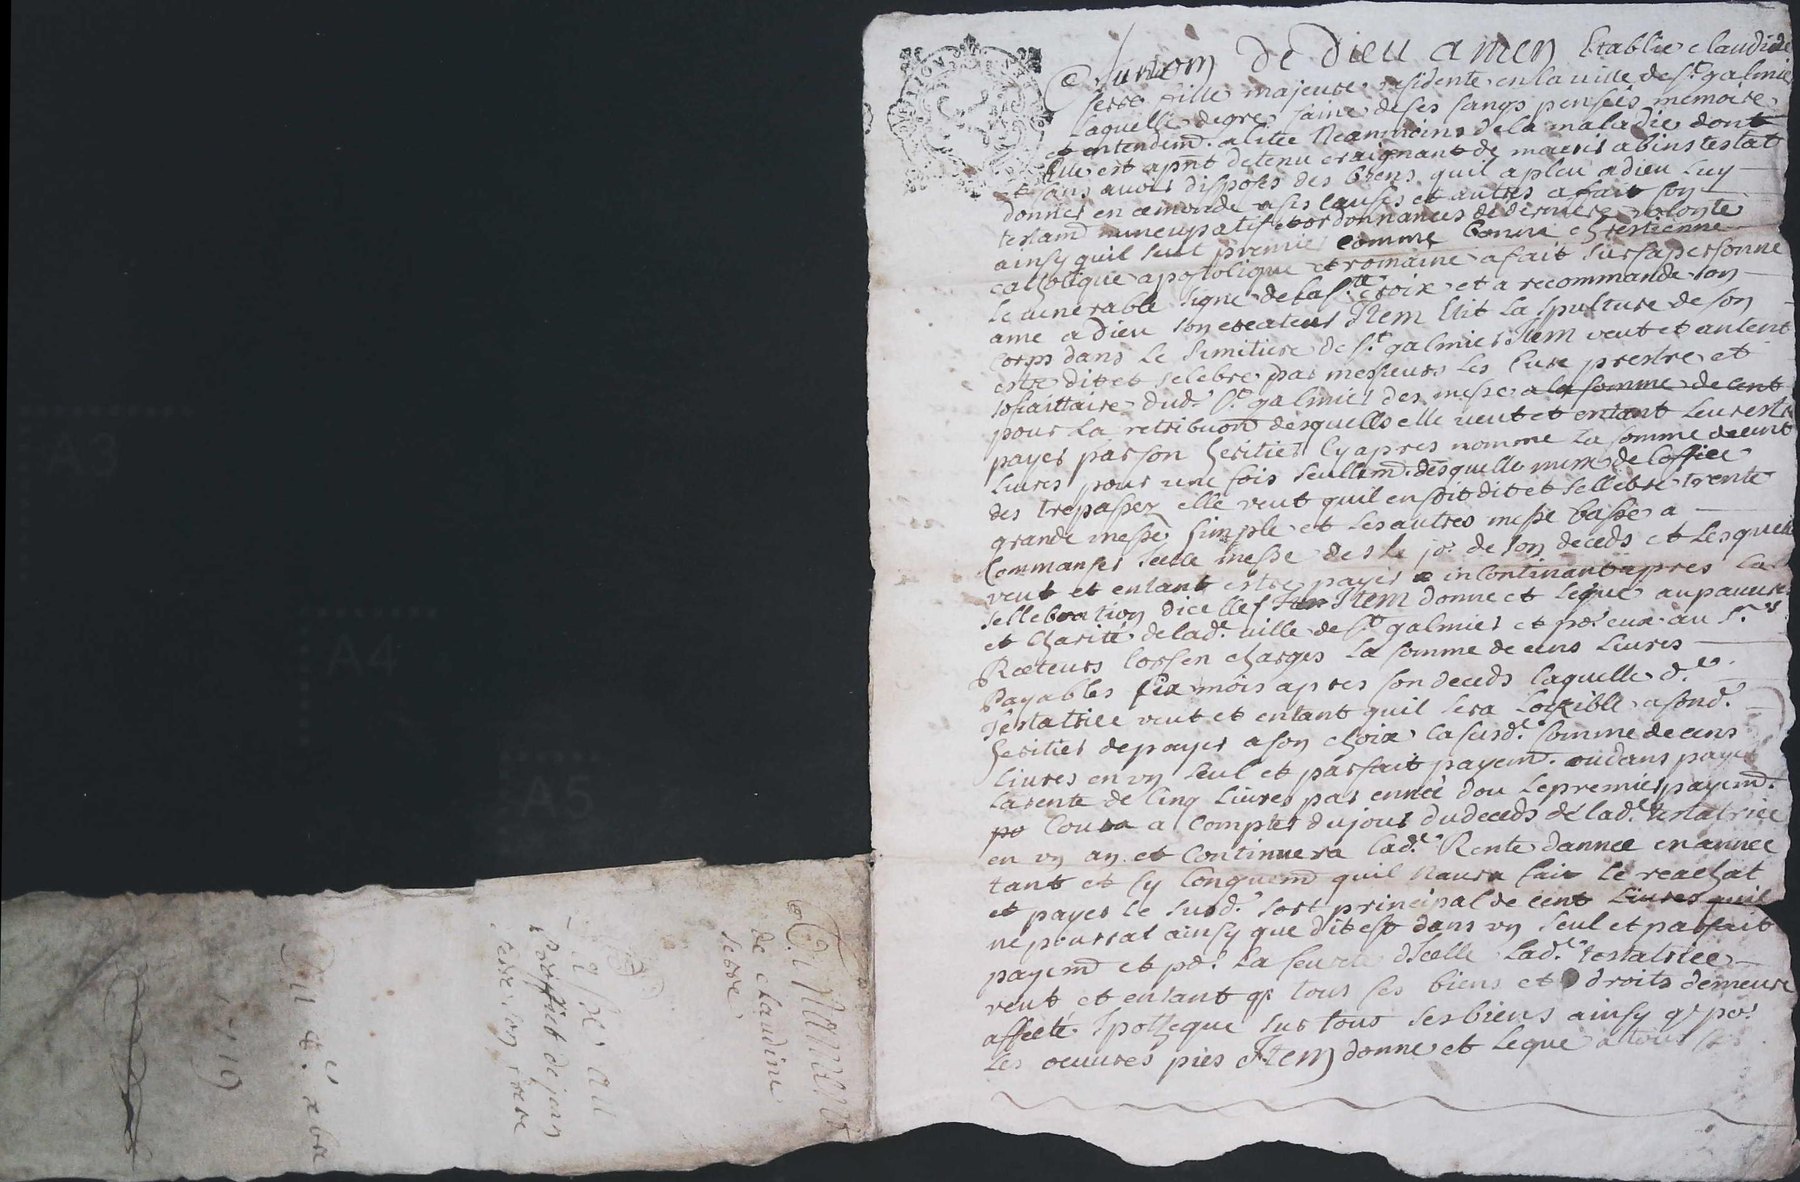 Au nom de Dieu amen Establie claudine
serre fille majeure residente en la ville de st galmier
laquelle de gre saine de ses sangs pensées memoire
et entendemt. alitée Neanmoins de la maladie dont
Elle est apnt detenu craignant de mourir abinstestat
et sans avoir disposer des biens quil a pleu a dieu luy
donner en ce monde a ses causes et autres a fait son
testamt nuncupatif et ordonnances de derniere volonte
ainsy quil suit premier comme bonne chrestienne
catholique apostolique et romaine a fait sur sa personne
le venerable signe de la ste croix et a recommande son
ame a Dieu son createur Item Elit la spulture de son
corps dans le simitiere de st galmier Item veut et entent
estre dit et selebre par messieurs les Cure prestre et
sosiaittaire dud. st galmier des messe a la somme de cent
pour la retribuon desquelles elle veut et entant leur estre
payer par son heritier Cy apres nomme la somme de cent
livres pour une fois seullemt. desquelle mesme de loffice
des trepassez elle veut quil en soit dit et sellebre trente
grande messe simple et les autres messe basse a
Commanser icelle messe des le jor de son deceds et lesquelle
veut et entant estre payer incontinant appres la
sellebration dicelles Item donne et legue au pauvres
et Charité de lad. ville de st galmier et pr eux au srs
Recteurs lors en charges la somme de cens livres
Payables six mois apres son deceds laquelle d.e
Testatrice veut et entant quil sera loisible a sond.
heritier de payer a son choix la susd. somme de cens
livres en vn seul et parfait payemt. ou dans payer
la rente de Cinq livres par année dou le premier payemt.
po Coura a Compter du jour du deceds de lad.e testatrice
en vn an et Continuera lad.e Rente dannee en annee
tant et sy longuemt quil Naura fait le reachat
et payer le susd. sort principal de cent Livres quil
ne pourrat ainsy que dit est dans vn seul et parfait
payemt et pr la seurte dicelle lad.e testatrice
veut et entant q tous ses biens et droits demeure
affecté. Ipotheque sur tous ses biens ainsy q por
les oeuvres pies Item donne et legue a tous
de claudine
serre
au
proffict de jean
serre son frere
1719